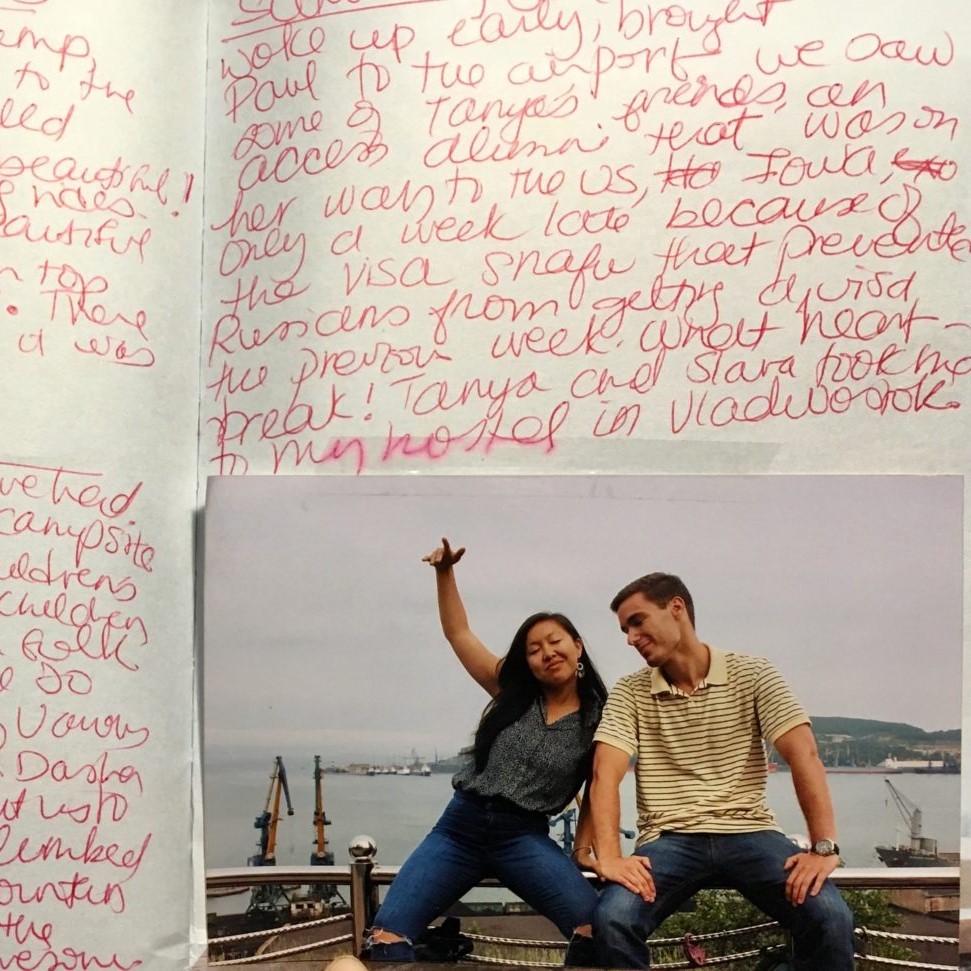 emp,
to the
led
beautiful!
autiful
n top
. There
d was
we had
campsite
ildrens
children
folk
e so
g Various
Dasha
ut us to
limbed
ountain
the
wesome
woke up early, brought
Paul to the airport we saw
some of Tanya's friends, an
access alumni that was on
her way to the US, Iowa,
only a week late because of
the visa snafu that prevente
Russians from getting a visa
the previous week. What heart-
break! Tanya and Slava took me
to my hostel in Vladivostok.